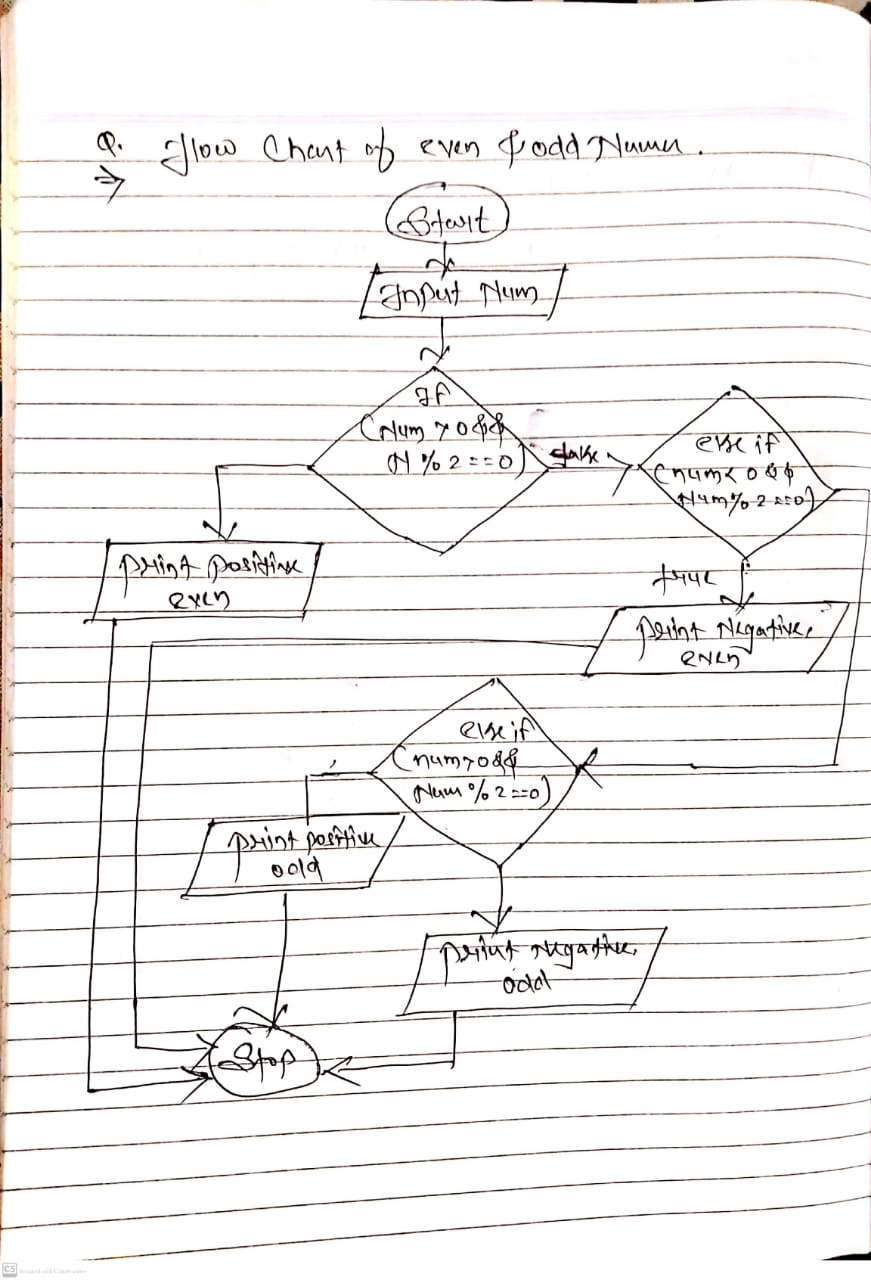 Q. Flow Chart of even & odd Numer.
⇒
Start
Input Num
If
(Num > 0 &&
N % 2 == 0)
false
else if
(num < 0 &&
Num % 2 == 0)
print positive
even
true
print Negative
even
else if
(num > 0 &&
Num % 2 == 0)
print positive
odd
print negative
odd
Stop
CS